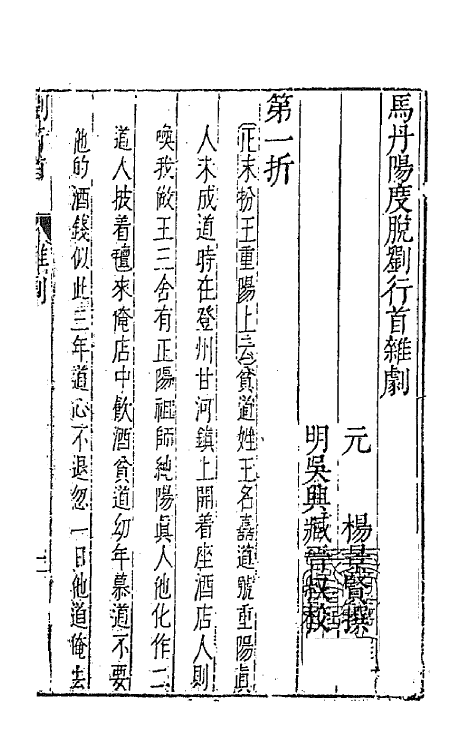 馬丹陽度脫劉行首雜劇
元　楊景賢撰
明吳興臧晉叔校
第一折
正末扮王重陽上云貧道姓王名嚞道號重陽眞
人未成道時在登州甘河鎮上開着座酒店人則
喚我做王三舍有正陽祖師純陽眞人他化作二
道人披着氊來俺店中飲酒貧道幼年慕道不要
他的酒錢似此三年道心不退忽一日他道俺去
劉行首　雜劇　一